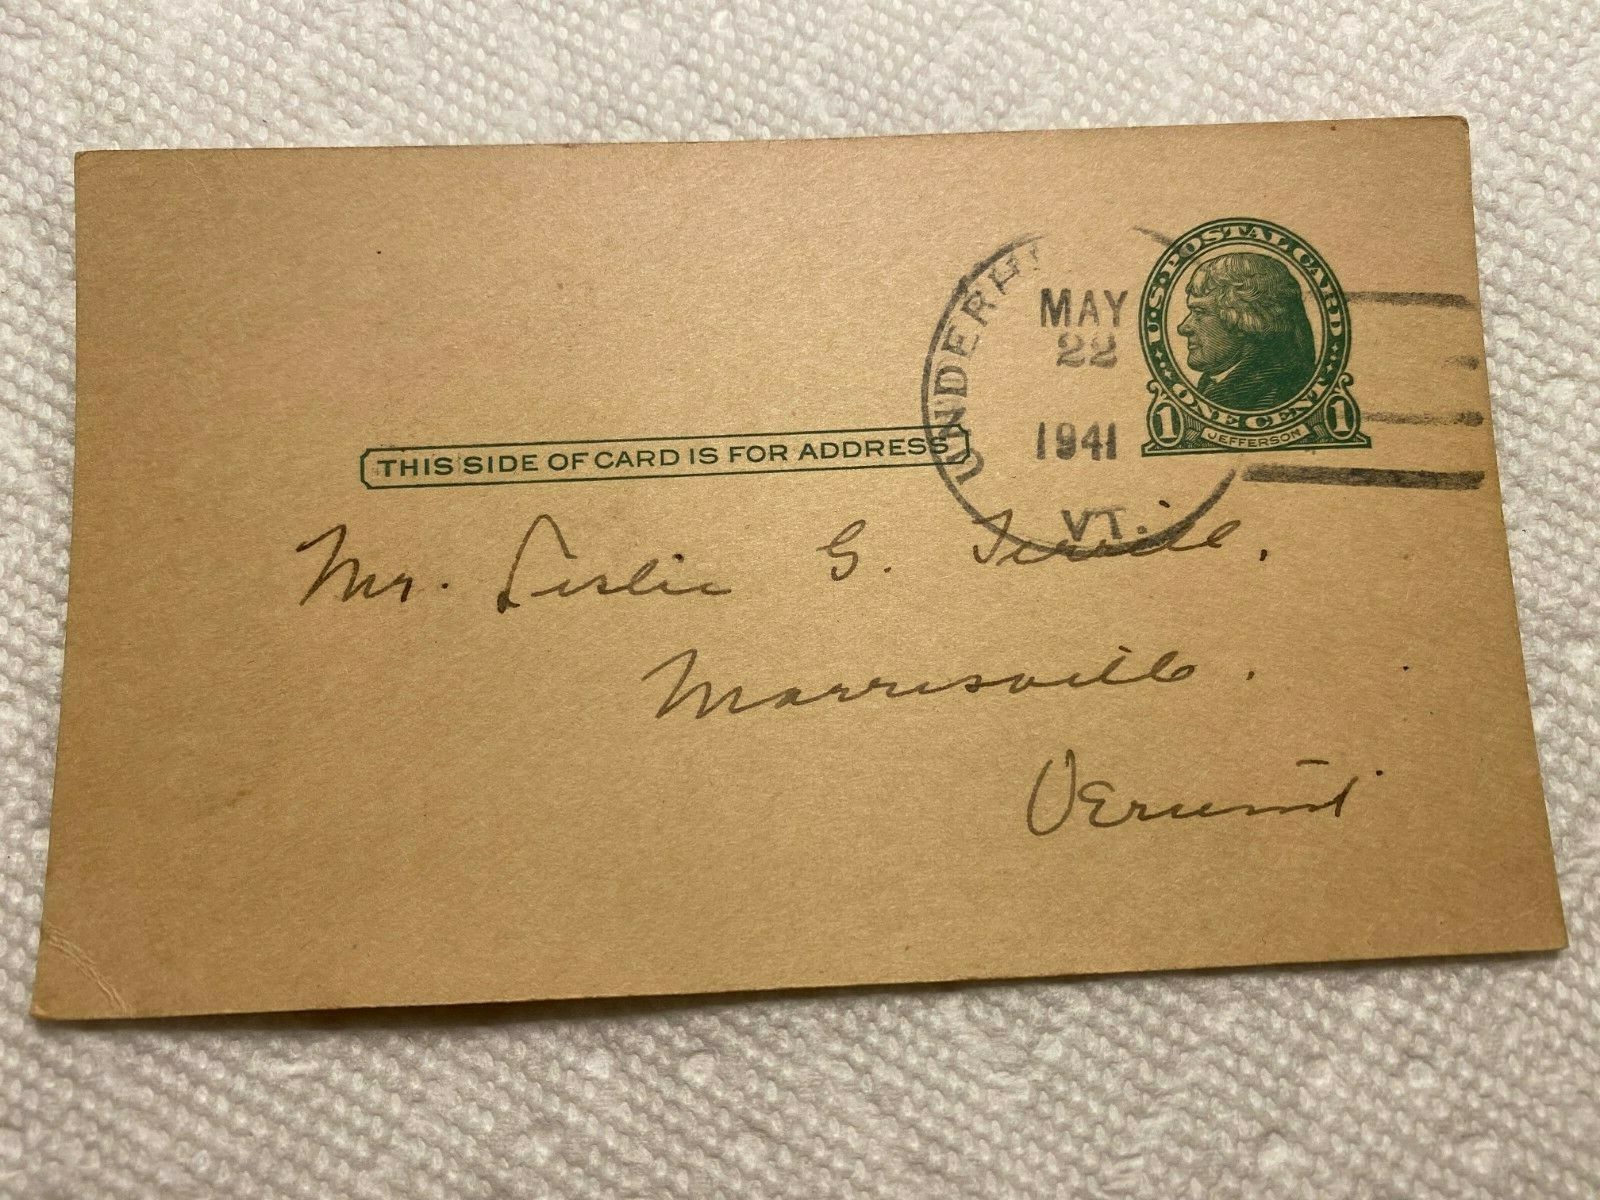 U.S. POSTAL CARD
ONE CENT
1 JEFFERSON 1
MAY
22
1941
VT.
THIS SIDE OF CARD IS FOR ADDRESS
Mr. Leslie G. Terrill.
Morrisville.
Vermont